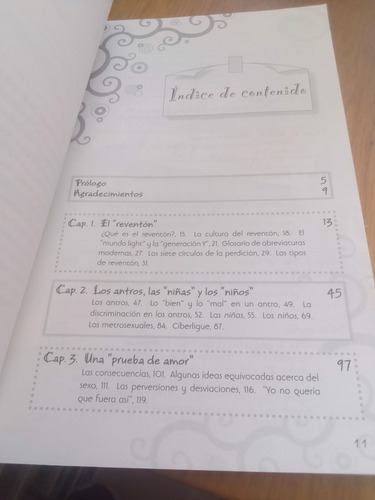 Índice de contenido
Prólogo 5
Agradecimientos 9
Cap. 1. El "reventón" 13
¿Qué es el reventón?, 15. La cultura del reventón, 18. El
"mundo light" y la "generación Y", 21. Glosario de abreviaturas
modernas, 27. Los siete círculos de la perdición, 29. Los tipos
de reventón, 31.
Cap. 2. Los antros, las "niñas" y los "niños" 45
Los antros, 47. Lo "bien" y lo "mal" en un antro, 49. La
discriminación en los antros, 52. Las niñas, 55. Los niños, 69.
Los metrosexuales, 84. Ciberligue, 87.
Cap. 3. Una "prueba de amor" 97
Las consecuencias, 101. Algunas ideas equivocadas acerca del
sexo, 111. Las perversiones y desviaciones, 116. "Yo no quería
que fuera así", 119.
11